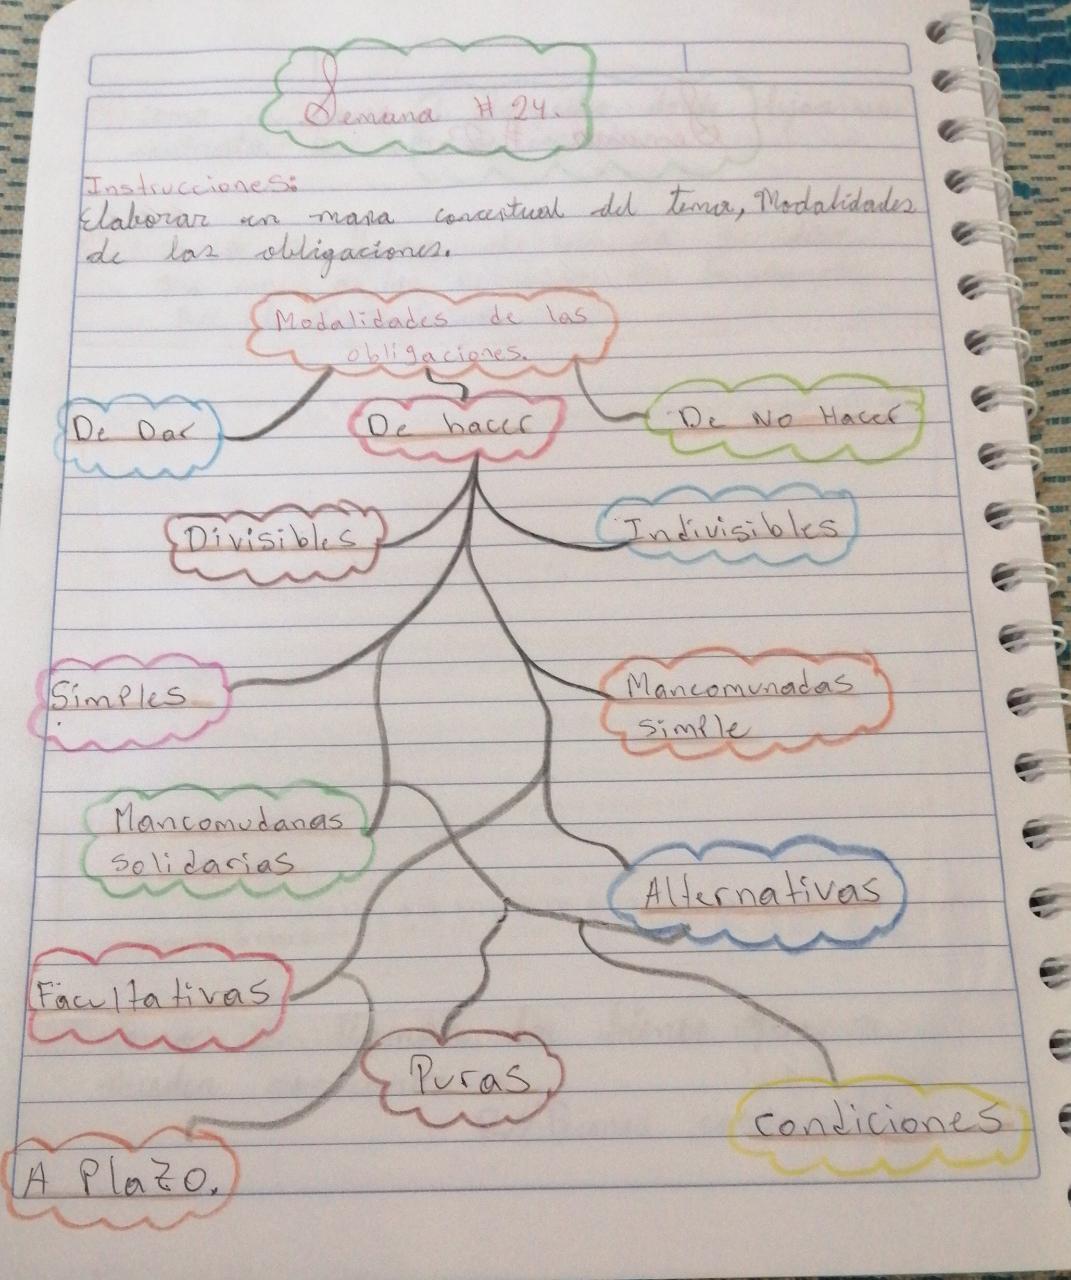 Semana # 24.
Instrucciones:
Elaborar un mapa conceptual del tema, Modalidades
de las obligaciones.
Modalidades de las
obligaciones.
De Dar
De hacer
De No Hacer
Divisibles
Indivisibles
Simples
Mancomunadas
simple
Mancomudanas
Solidarias
Alternativas
Facultativas
Puras
Condiciones
A Plazo.